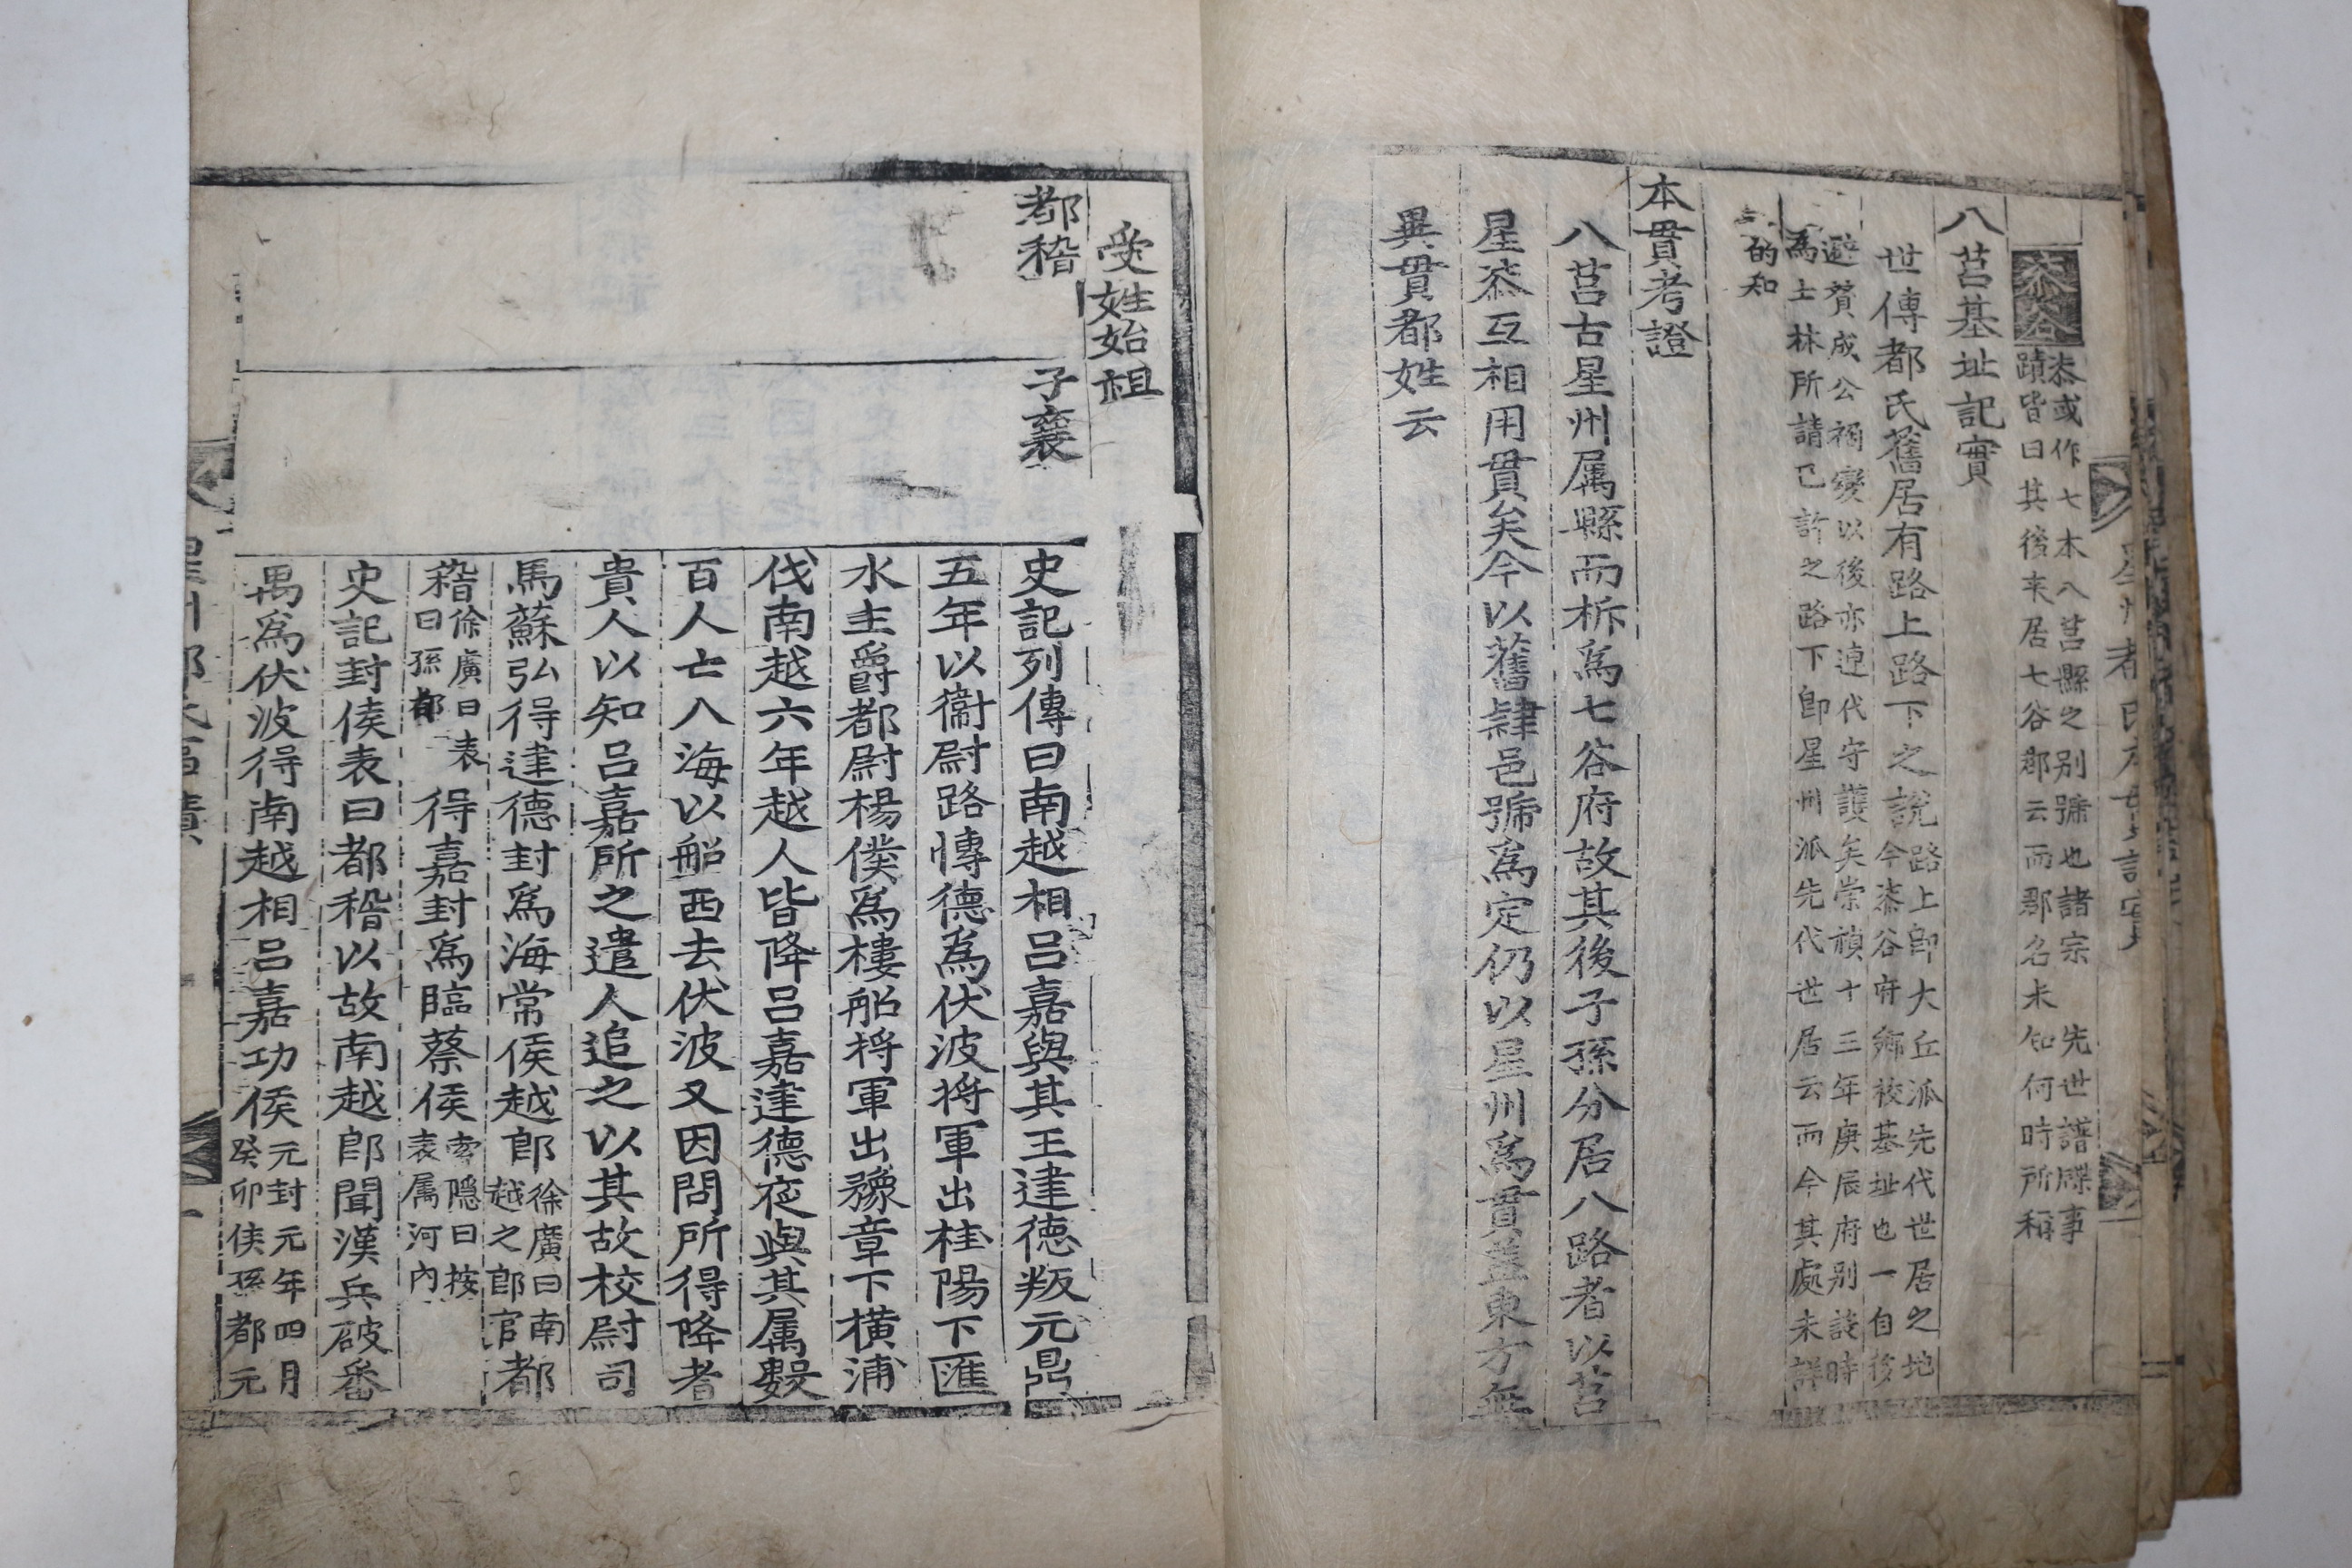 桼谷
桼或作七本八莒縣之別號也諸宗先世譜牒事
蹟皆曰其後來居七谷郡云而郡名未知何時所稱
八莒基址記實
世傳都氏舊居有路上路下之說
路上卽大丘派先代世居之地
今桼谷府鄕校基址也一自移
避贊成公禍變以後亦連代守護矣崇禎十三年庚辰府別設時
爲士林所請已許之路下卽星州派先代世居云而今其處未詳
的知
本貫考證
八莒古星州属縣而柝爲七谷府故其後子孫分居八路者以莒
星桼互相用貫矣今以舊肆邑號爲定仍以星州爲貫盖東方無
異貫都姓云
受姓始祖
都稽
子襄
史記列傳曰南越相呂嘉與其王建德叛元鼎
五年以衞尉路慱德爲伏波將軍出桂陽下匯
水主爵都尉楊僕爲樓船將軍出豫章下横浦
伐南越六年越人皆降呂嘉建德夜與其属數
百人亡入海以船西去伏波又因問所得降者
貴人以知呂嘉所之遣人追之以其故校尉司
馬蘇弘得建德封爲海常侯越郎
徐廣曰南
越之郎官
都
稽
徐廣曰表
曰孫都
得嘉封爲臨蔡侯
索隠曰按
表属河內
史記封侯表曰都稽以故南越郎聞漢兵破番
禺爲伏波得南越相呂嘉功侯
元封元年四月
癸卯侯孫都元